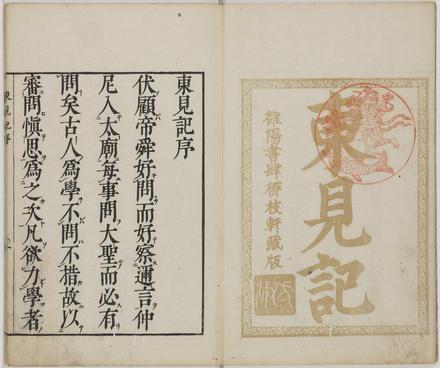 東見記
雒陽書肆柳枝軒藏版
東見記序
伏顧帝舜好問而好察邇言仲
尼入太廟每事問大聖而必有
問矣古人爲學不問不措故以
審問愼思爲之次凡欲力學者
東見記序